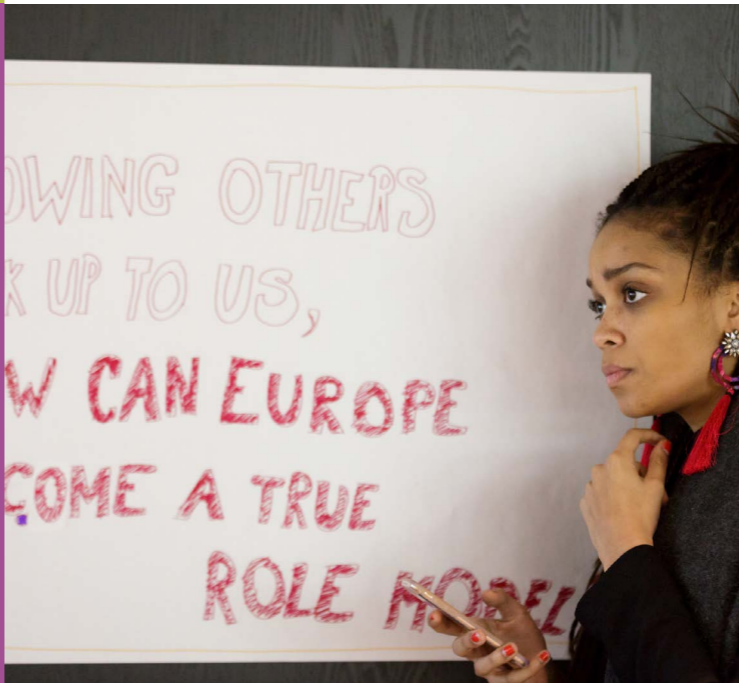 OWING OTHERS
K UP TO US,
W CAN EUROPE
COME A TRUE
ROLE MODEL